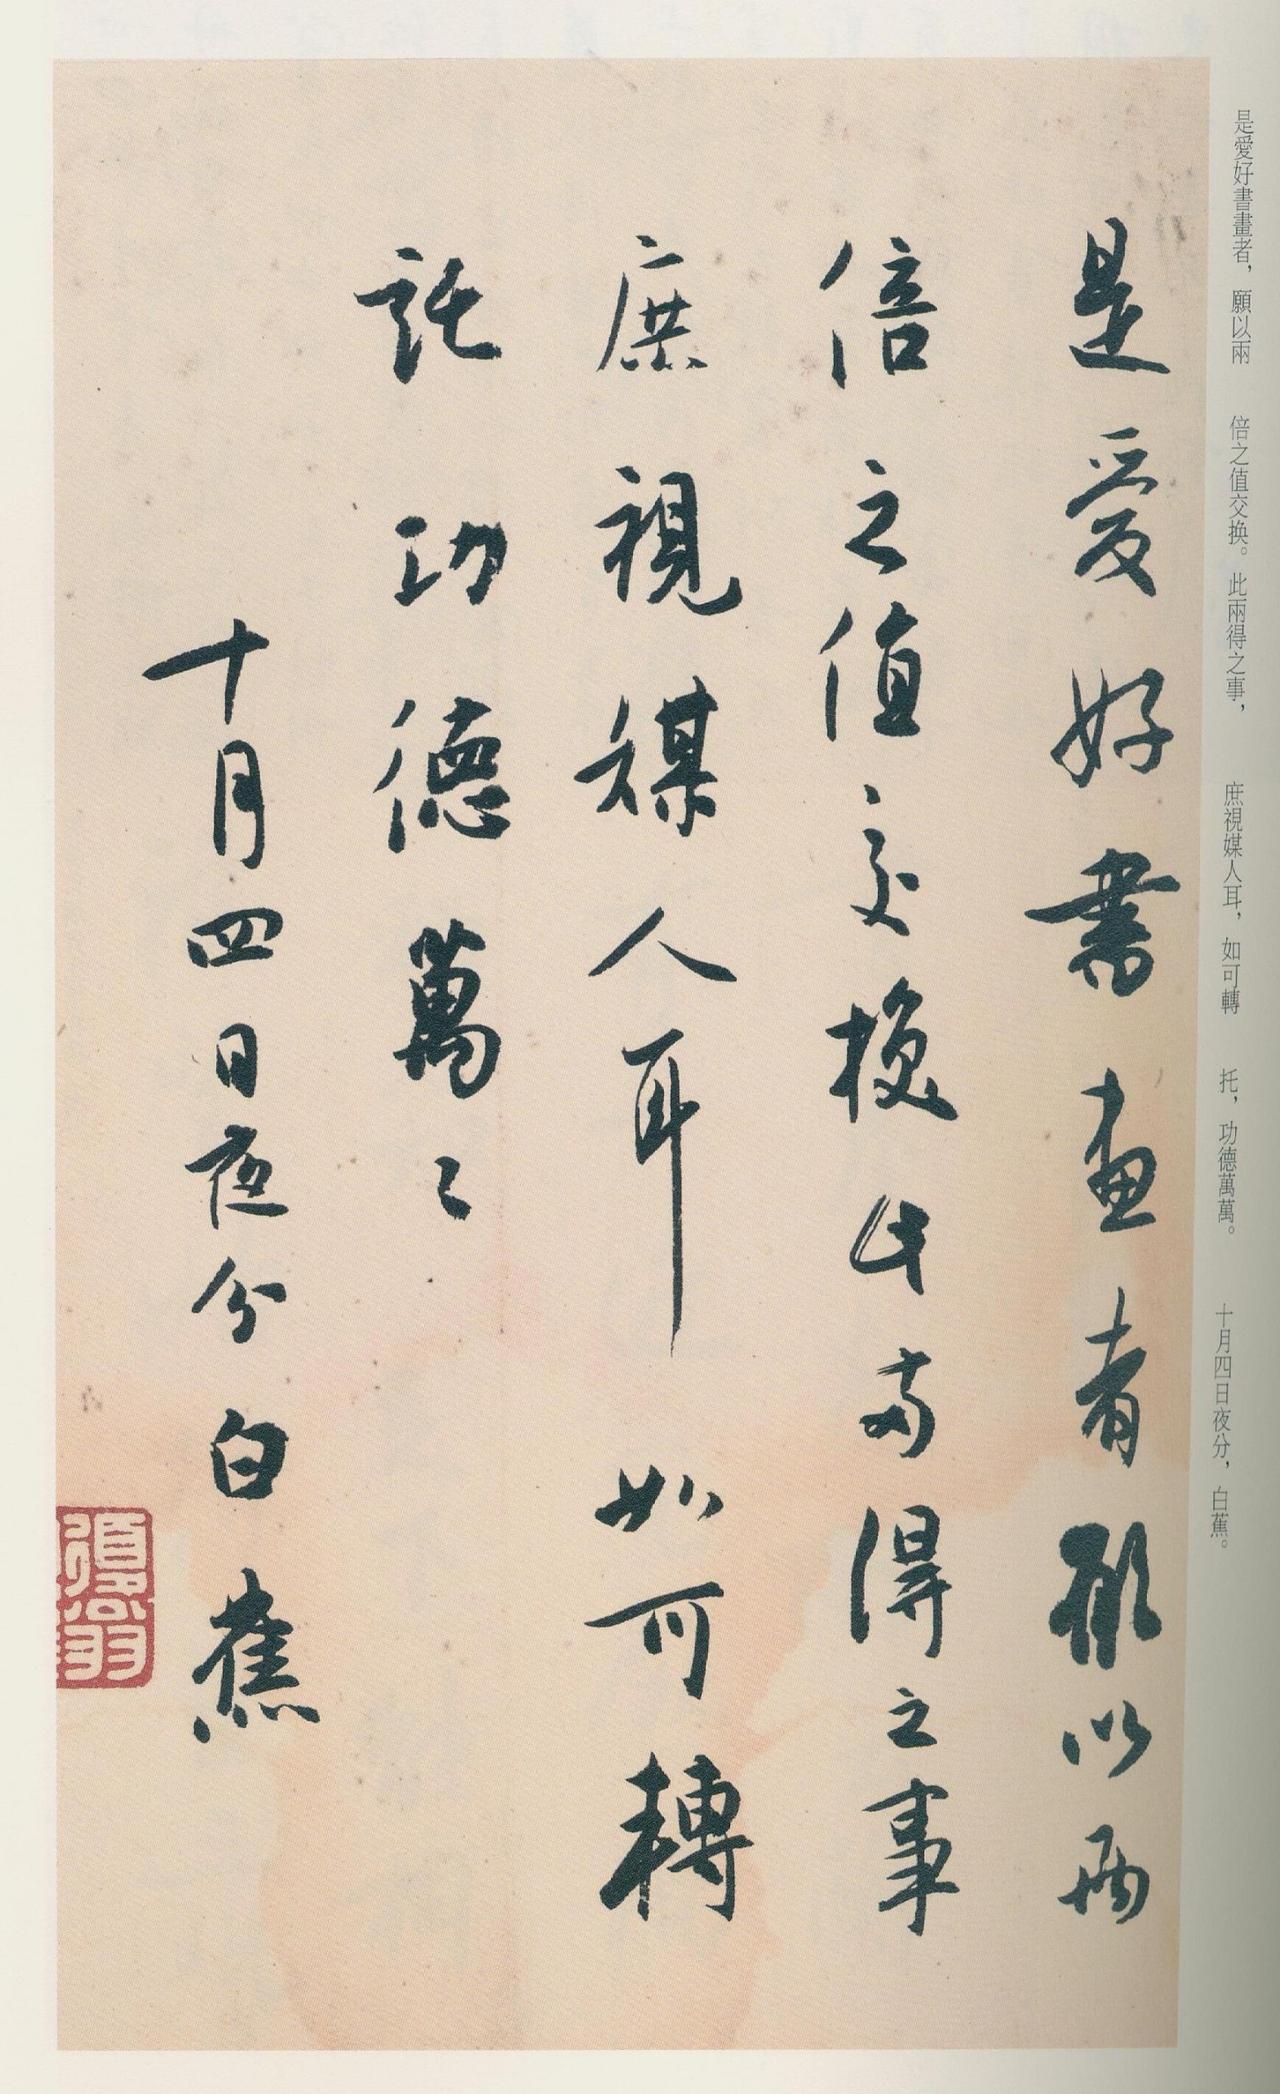 是愛好書畫者，願以兩　倍之值交换。此兩得之事，　庶視媒人耳，如可轉　托，功德萬萬。　十月四日夜分，白蕉。
是愛好書畫者願以兩
倍之值交換此兩得之事
庶視媒人耳如可轉
託功德萬〻
十月四日夜分白蕉